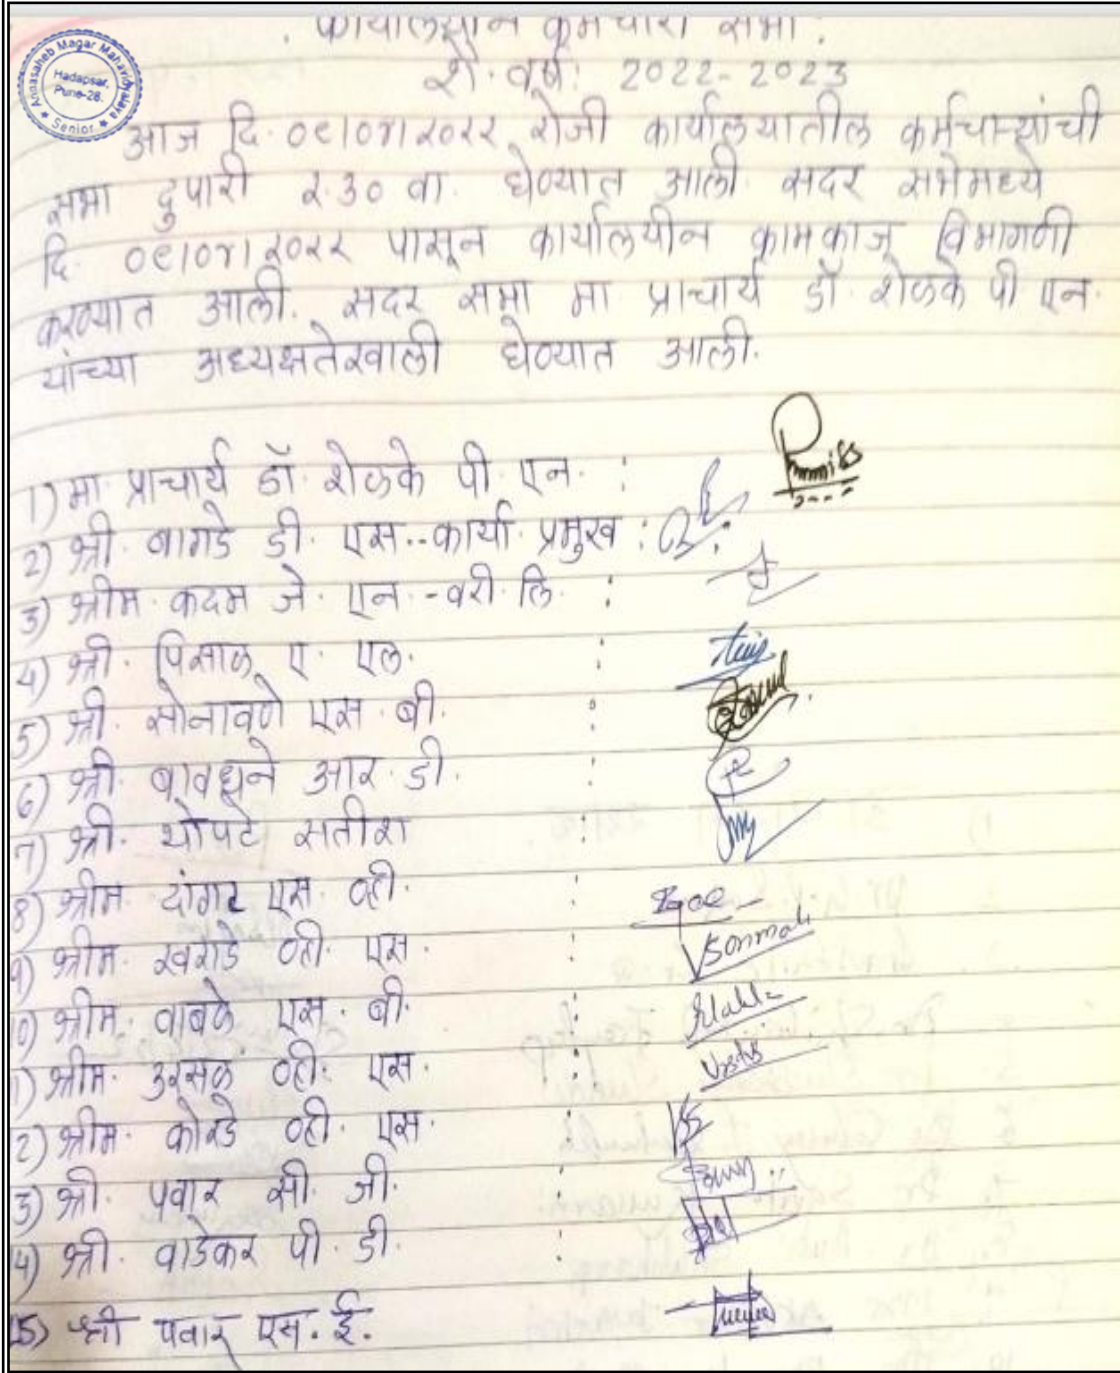 कार्यालयीन कर्मचारी सभा.
शै. वर्ष: 2022-2023
Annasaheb Magar Mahavidyalaya
Hadapsar,
Pune-28.
Senior
आज दि. ०९/०४/२०२२ रोजी कार्यालयातील कर्मचाऱ्यांची
सभा दुपारी २.३० वा. घेण्यात आली. सदर सभेमध्ये
दि. ०९/०४/२०२२ पासून कार्यालयीन कामकाज विभागणी
करण्यात आली. सदर सभा मा. प्राचार्य डॉ. शेळके पी एन
यांच्या अध्यक्षतेखाली घेण्यात आली.
1) मा. प्राचार्य डॉ. शेळके पी. एन. :
2) श्री. बागडे डी. एस.-कार्या. प्रमुख :
3) श्रीम. कदम जे. एन.-वरी. लि. :
4) श्री. पिसाळ ए. एल. :
5) श्री. सोनावणे एस. बी. :
6) श्री. बावधने आर. डी. :
7) श्री. थोपटे सतीश :
8) श्रीम. दांगट एस. व्ही. :
9) श्रीम. खराडे व्ही. एस. :
0) श्रीम. वाबळे एस. बी. :
1) श्रीम. उरसळ व्ही. एस. :
2) श्रीम. कोरडे व्ही. एस. :
3) श्री. पवार सी. जी. :
4) श्री. वाडेकर पी. डी. :
15) श्री पवार एन. ई.